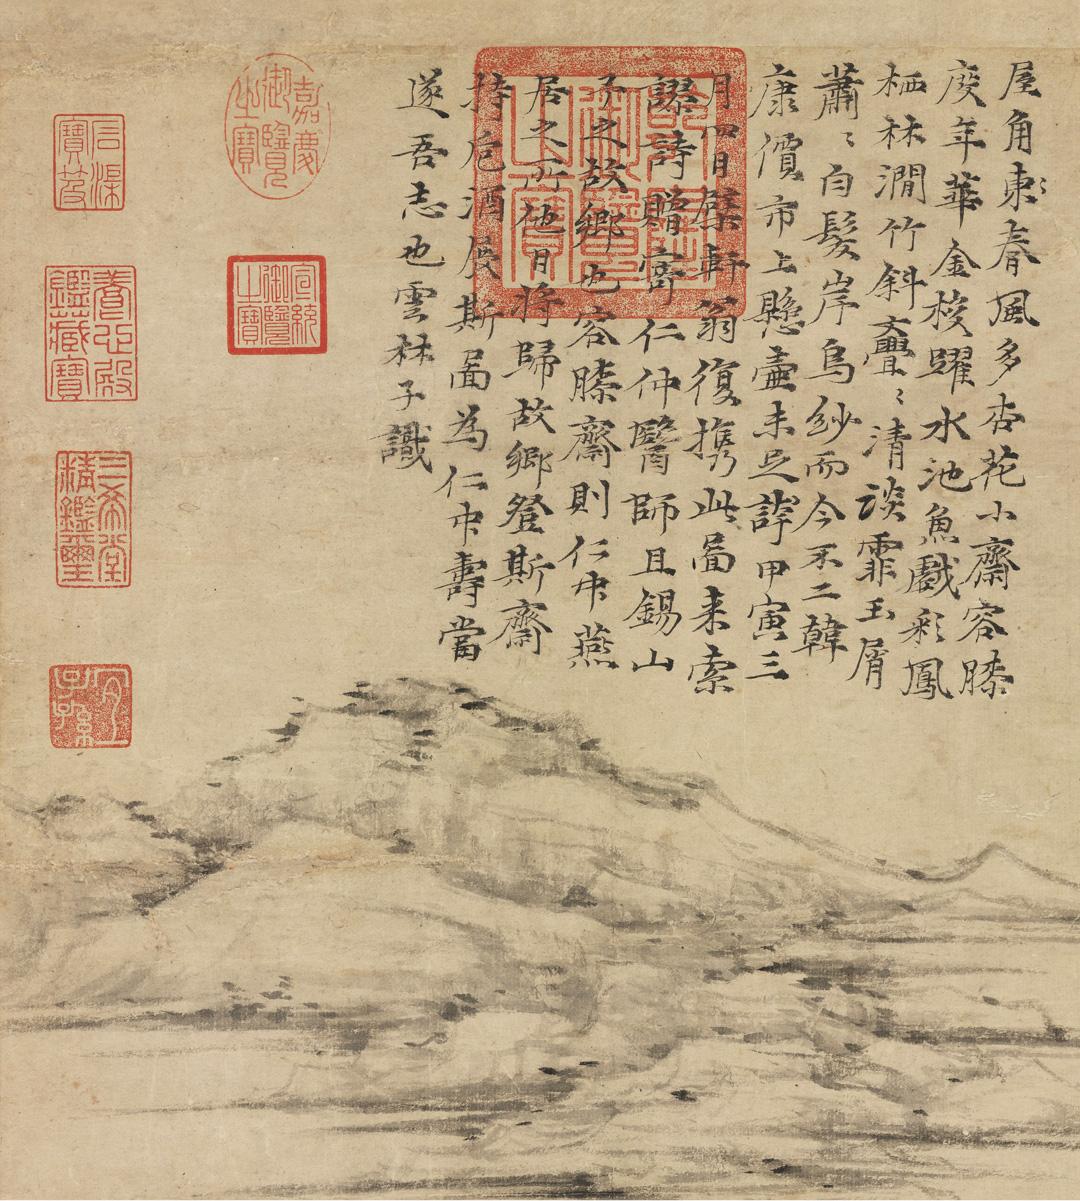 屋角東〻春風多杏花小齋容膝
度年華金梭躍水池魚戲彩鳳
栖林澗竹斜亹〻清談霏玉屑
蕭〻白髮岸烏紗而今不二韓
康價市上懸壺未足誇甲寅三
月四日檗軒翁復携此啚来索
謬詩贈寄仁仲醫師且錫山
予之故鄉也容膝齋則仁中燕
居之所他日將歸故鄉登斯齋
持卮酒展斯啚為仁中壽當
遂吾志也雲林子識
乾隆御覽之寶
嘉慶御覽之寶
宣統御覽之寶
石渠寶笈
養心殿鑑藏寶
三希堂精鑑璽
宜子孫